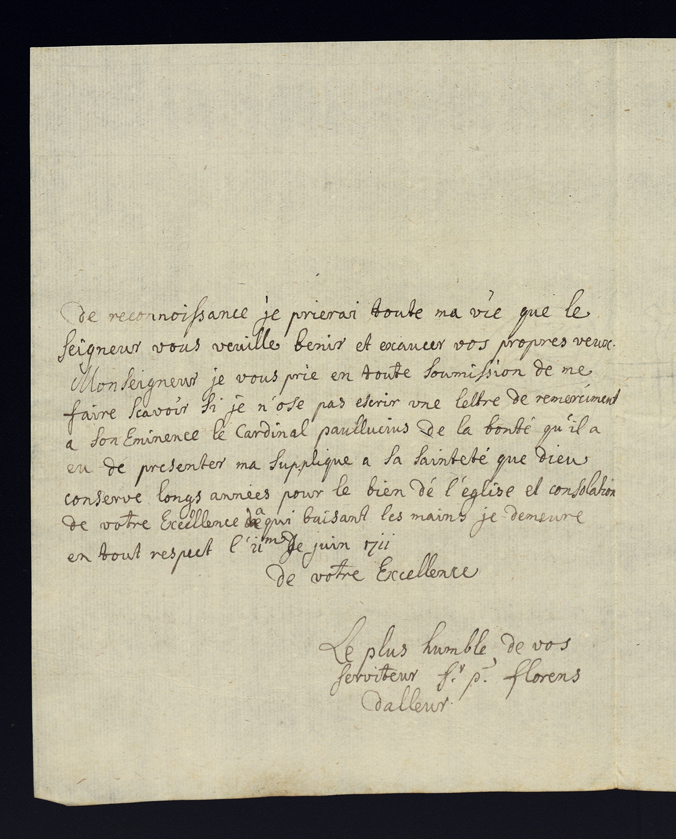 De reconnoissance je prierai toute ma vie que le
seigneur vous veuille benir et exaucer vos propres veux.
Monseigneur je vous prie en toute soumission de me
faire scavoir si je n'ose pas escrir vne lettre de remerciment
a son Eminence le Cardinal paullucius De la bonté qu'il a
eu de presenter ma supplique a sa sainteté que dieu
conserve longs années pour le bien dé l'église et consolation
de votre Excellence a qui baisant les mains je demeure
en tout respect l'ii me de juin 1711
de votre Excellence
Le plus humble de vos
serviteur f.r p. florens
dalleur.